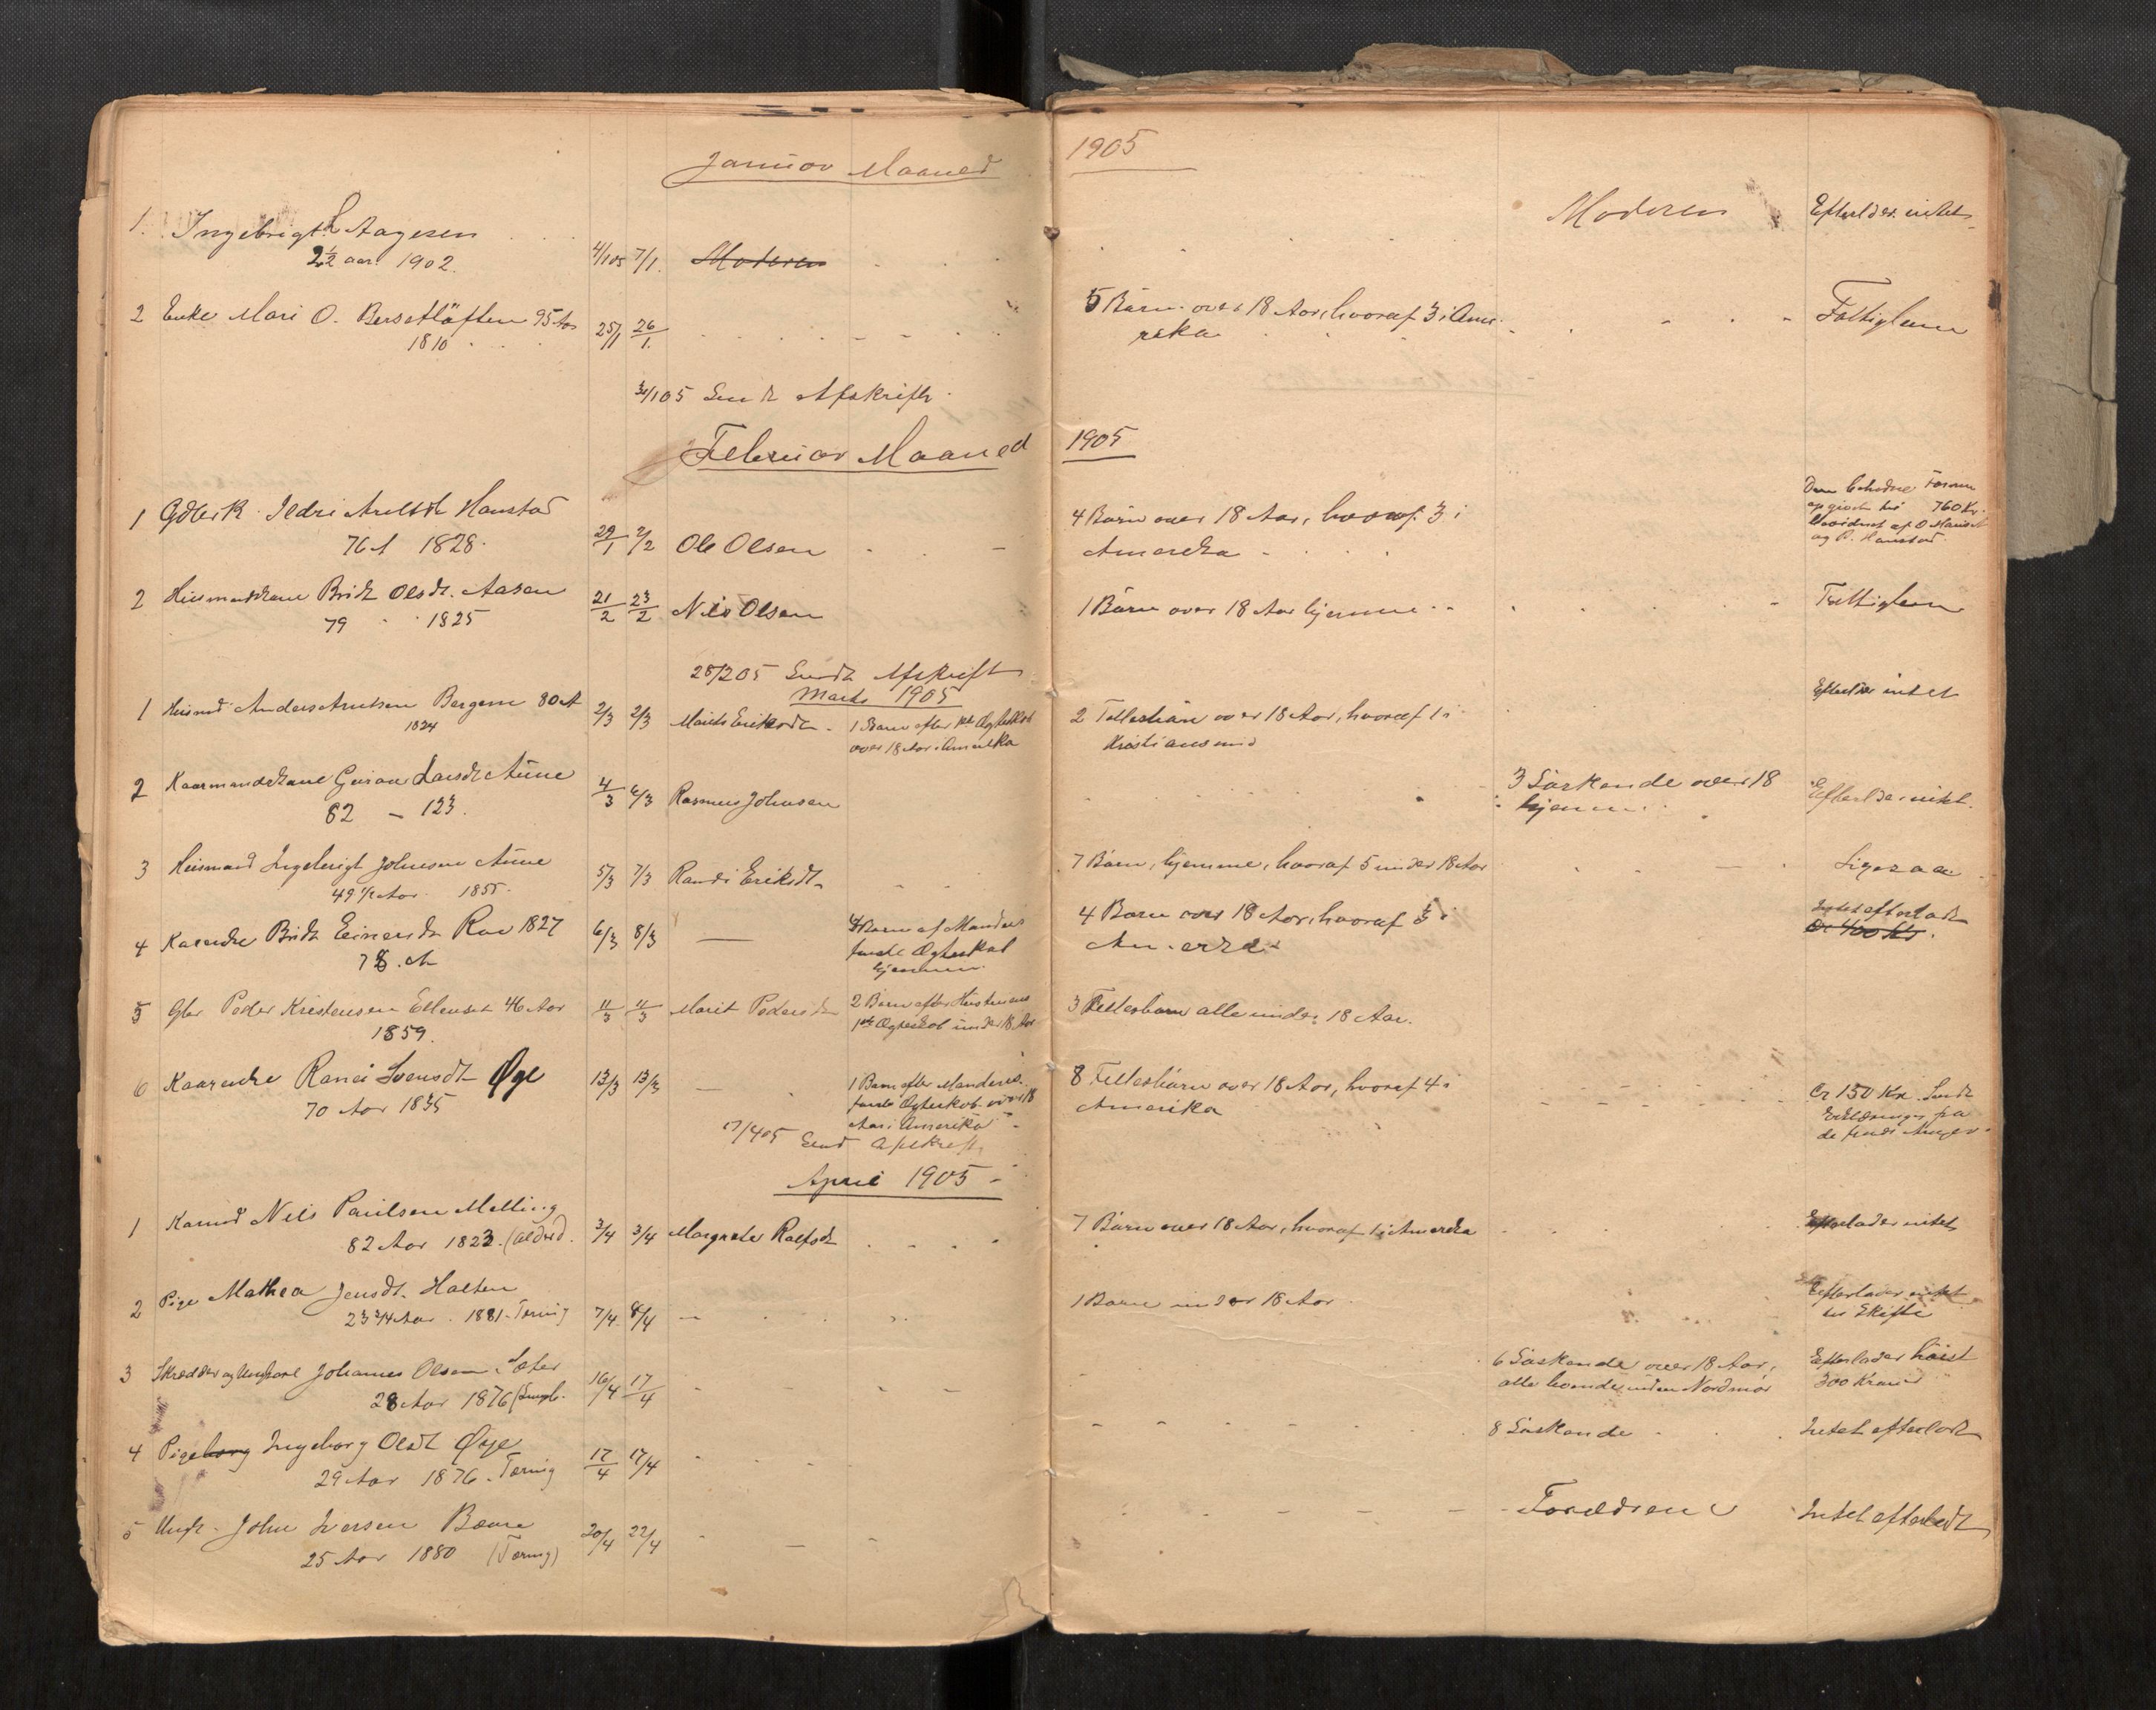 Januar Maaned 1905
1. Ingebrigt L Aagesen
2½ aar. 1902. 4/1 05 7/1. Moderen
Moderen Efterlader intet
2 Enke Mari O. Bersetløften 95 Aar
1810 25/1 26/1.
5 Børn over 18 Aar, hvoraf 3 i Ame-
rika
Fattiglem
31/1 05 Sendt Afskrift.
Februar Maaned 1905
1 Gdbrk. Ildri Arntsdt Hanstad
76 A 1828. 29/1 2/2 Ole Olsen
4 Børn over 18 Aar, hvoraf 3 i
Amerika
760 Kr.
og P. Hanstad.
2 Husmandskone Brit Olsdt. Aasen
79 1825 21/2 23/2 Nils Olsen
1 Børn over 18 Aar hjemme
Fattiglem
28/2 05 Sendt Afskrift
Marts 1905
1 Husmd Anders Arntsen Bergem 80 A
1824 2/3 2/3 Marit Eriksdt.
1 Barn efter 1ste Ægteskab
over 18 Aar i Amerika
2 Fellesbørn over 18 Aar, hvoraf 1 i
Kristiansund
Efterlader intet
2 Kaarmandskone Guroe Larsdt Aune
82 – 123. 4/3 6/3 Rasmus Johnsen
3 Søskende over 18
hjemme
Efterlader intet.
3 Husmand Ingebrigt Johnsen Aune
49 ½ Aar. 1855. 5/3 7/3 Randi Eriksdt.
7 Børn, hjemme, hvoraf 5 under 18 Aar
Ligesaa
4 Kaarenke Brit Einarsdt. Roe 1827
78 A 6/3 8/3 —
4 Børn af Mandens
første Ægteskab
hjemme.
4 Børn over 18 Aar, hvoraf 3 i
Amerika
Intet efterladt
Cr 400 Kr.
5 Gbr. Peder Kristensen Ellenset 46 Aar
1859. 11/3 11/3 Marit Pedersdt
2 Børn efter Hustruens
1ste Ægteskab under 18 Aar
3 Fellesbørn alle under 18 Aar.
6 Kaarenke Ranei Svensdt Øye
70 Aar 1835 13/3 13/3 —
1 Barn efter Mandens
første Ægteskab over 18
Aar i Amerika
8 Fellesbørn over 18 Aar, hvoraf 4 i
Amerika
Cr 150 Kr. Sendt
Erklæring fra
17/4 05 Sendt Afskrift
April 1905
1 Karmd Nils Paulsen Melling
82 Aar 1823. (Aldred. 3/4 3/4 Margrete Rolfsdt
7 Børn over 18 Aar, hvoraf 1 i Amerika
Efterlader intet
2 Pige Mathea Jensdt. Halten
23 3/4 Aar. 1881. Tæring 7/4 8/4 –
1 Barn under 18 Aar
Efterlader intet
til Skifte
3 Skrædder og Ungkarl Johannes Olsen Sæter
28 Aar 1876 16/4 17/4
6 Søskende over 18 Aar,
alle boende inden Nordmør
Efterlader høist
300 Kroner
4 Pige Ingeborg Olsdt Øye
29 Aar 1876. Tæring 17/4 17/4
8 Søskende
Intet efterladt
5 Ungk. John Iversen Bævre
25 Aar 1880 (Tæring) 20/4 22/4
Forældrene
Intet efterladt